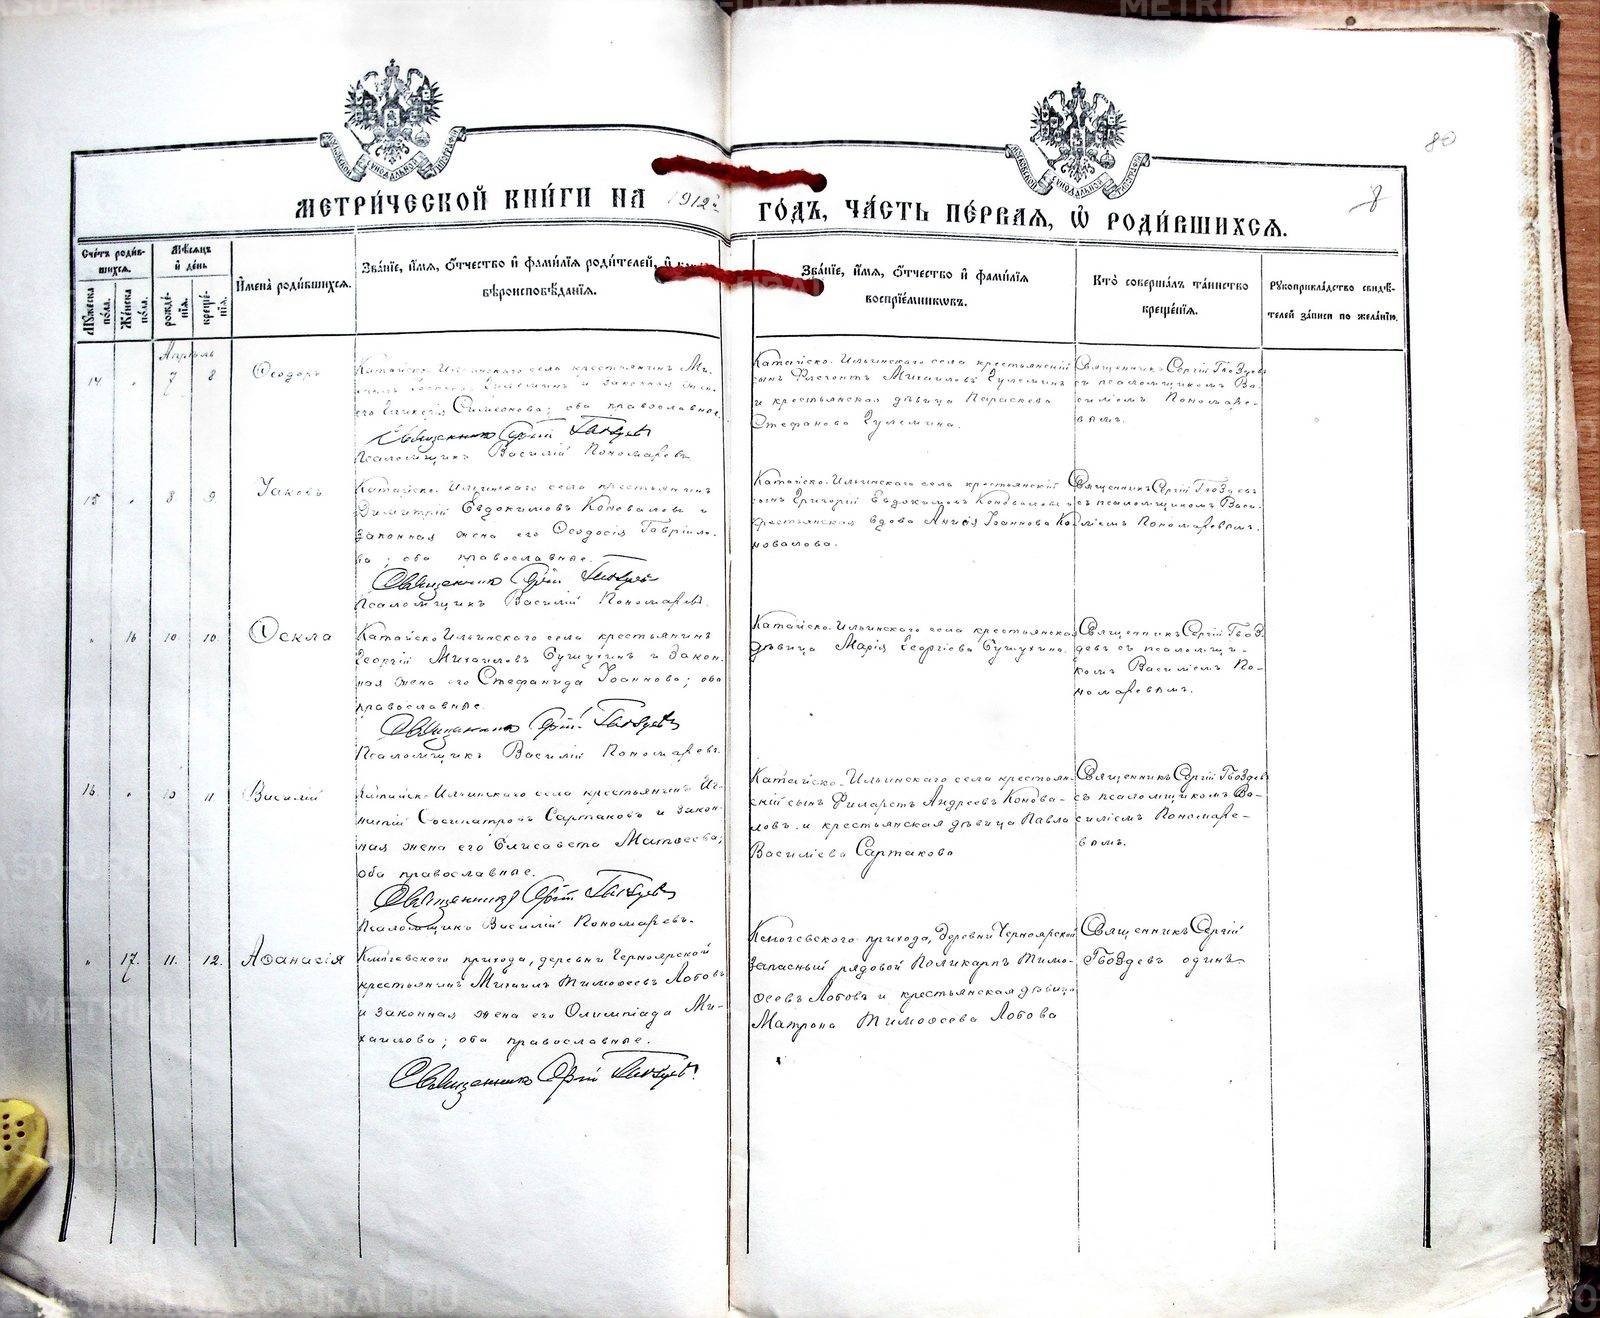 METRIKI.GASO-URAL.RU
80
8
МЕТРИ́ЧЕСКОЙ КНИ́ГИ НА 1912й ГО́ДЪ, ЧА́СТЬ ПЕ́РВАЯ, Ѡ РОДИ́ВШИХСЯ.
Сче́тъ роди́вшихся.
Мѣ́сяцъ и де́нь
Мꙋ́жеска по́ла.
Же́нска по́ла.
рожде́нїя.
креще́нїя.
И́мена̀ роди́вшихся.
Зва́нїе, и́мя, ѻ́тчество и фами́лїя роди́телей, и
вѣроисповѣ́данїя.
Зва́нїе, и́мя, ѻ́тчество и фами́лїя
воспрїе́мниковъ.
Кто̀ соверша́лъ та́инство
креще́нїя.
Рꙋкоприкла́дство свидѣ́-
телей за́писи по жела́нїю.
Апрѣль
14 " 7 8 Ѳеодоръ
Катайско-Ильинскаго села крестьянинъ Ми-
законная жена
его Симеонова; оба православные.
Священникъ Сергій Гвоздевъ
Псаломщикъ Василій Пономаревъ
Катайско-Ильинскаго села крестьянскій
сынъ Флегонтъ Михаиловъ Гулеминъ
и крестьянская дѣвица Параскева
Стефанова Гулемина.
Священникъ Сергій Гвоздевъ
съ псаломщикомъ Ва-
силіемъ Пономаре-
вымъ.
15 " 8 9 Іаковъ
Катайско-Ильинскаго села крестьянинъ
Димитрій Евдокимовъ Коноваловъ и
законная жена его Ѳеодосія Гавріило-
ва; оба православные.
Священникъ Сергій Гвоздевъ
Псаломщикъ Василій Пономаревъ.
Катайско-Ильинскаго села крестьянскій
сынъ Григорій Евдокимовъ Коноваловъ и
крестьянская вдова Анна Іоаннова Ко-
новалова.
Священникъ Сергій Гвоздевъ
съ псаломщикомъ Васи-
ліемъ Пономаревымъ.
" 16 10 10. Ѳекла
Катайско-Ильинскаго села крестьянинъ
Георгій Михаиловъ Бушухинъ и закон-
ная жена его Стефанида Іоаннова; оба
православные.
Священникъ Сергій Гвоздевъ
Псаломщикъ Василій Пономаревъ.
Катайско-Ильинскаго села крестьянская
дѣвица Марія Георгіева Бушухина.
Священникъ Сергій Гвоз-
девъ съ псаломщи-
комъ Василіемъ По-
номаревымъ.
16 " 10 11 Василій
Катайско-Ильинскаго села крестьянинъ Иг-
натій Сосипатровъ Сартаковъ и закон-
ная жена его Елисавета Матвеева;
оба православные.
Священникъ Сергій Гвоздевъ
Псаломщикъ Василій Пономаревъ.
Катайско-Ильинскаго села крестьян-
скій сынъ Филаретъ Андреевъ Конова-
ловъ и крестьянская дѣвица Павла
Василіева Сартакова
Священникъ Сергій Гвоздевъ
съ псаломщикомъ Ва-
силіемъ Пономаре-
вымъ.
" 17. 11. 12. Аѳанасія
прихода, деревни Черноярской
крестьянинъ Михаилъ Тимоѳеевъ Лобовъ
и законная жена его Олимпіада Ми-
хаилова; оба православные.
Священникъ Сергій Гвоздевъ.
прихода, деревни Черноярской
запасный рядовой Поликарпъ Тимо-
ѳеевъ Лобовъ и крестьянская дѣвица
Матрона Тимоѳеева Лобова
Священникъ Сергій
Гвоздевъ одинъ